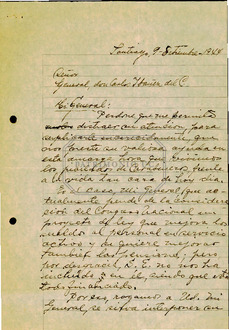 Santiago, 9 - Setiembre - 1948
Señor
General, don Carlos Ibáñez del C.
Mi General:
Perdone que me permita
distraer su atención, para
suplicarle
nos preste su valiosa ayuda en
esta amarga hora que vivimos
los jubilados de Carabineros, frente
a la vida tan cara de hoy día.
Es el caso, mi General, que ac-
tualmente pende de la conside-
ración del Congreso Nacional un
proyecto de ley que mejora los
sueldos al personal en servicio
activo y se quiere mejorar
también las pensiones; pero
por desgracia, S. E. no nos ha
incluido en él, siendo que es
Por eso, rogamos a Ud. mi
General, se sirva interponer su